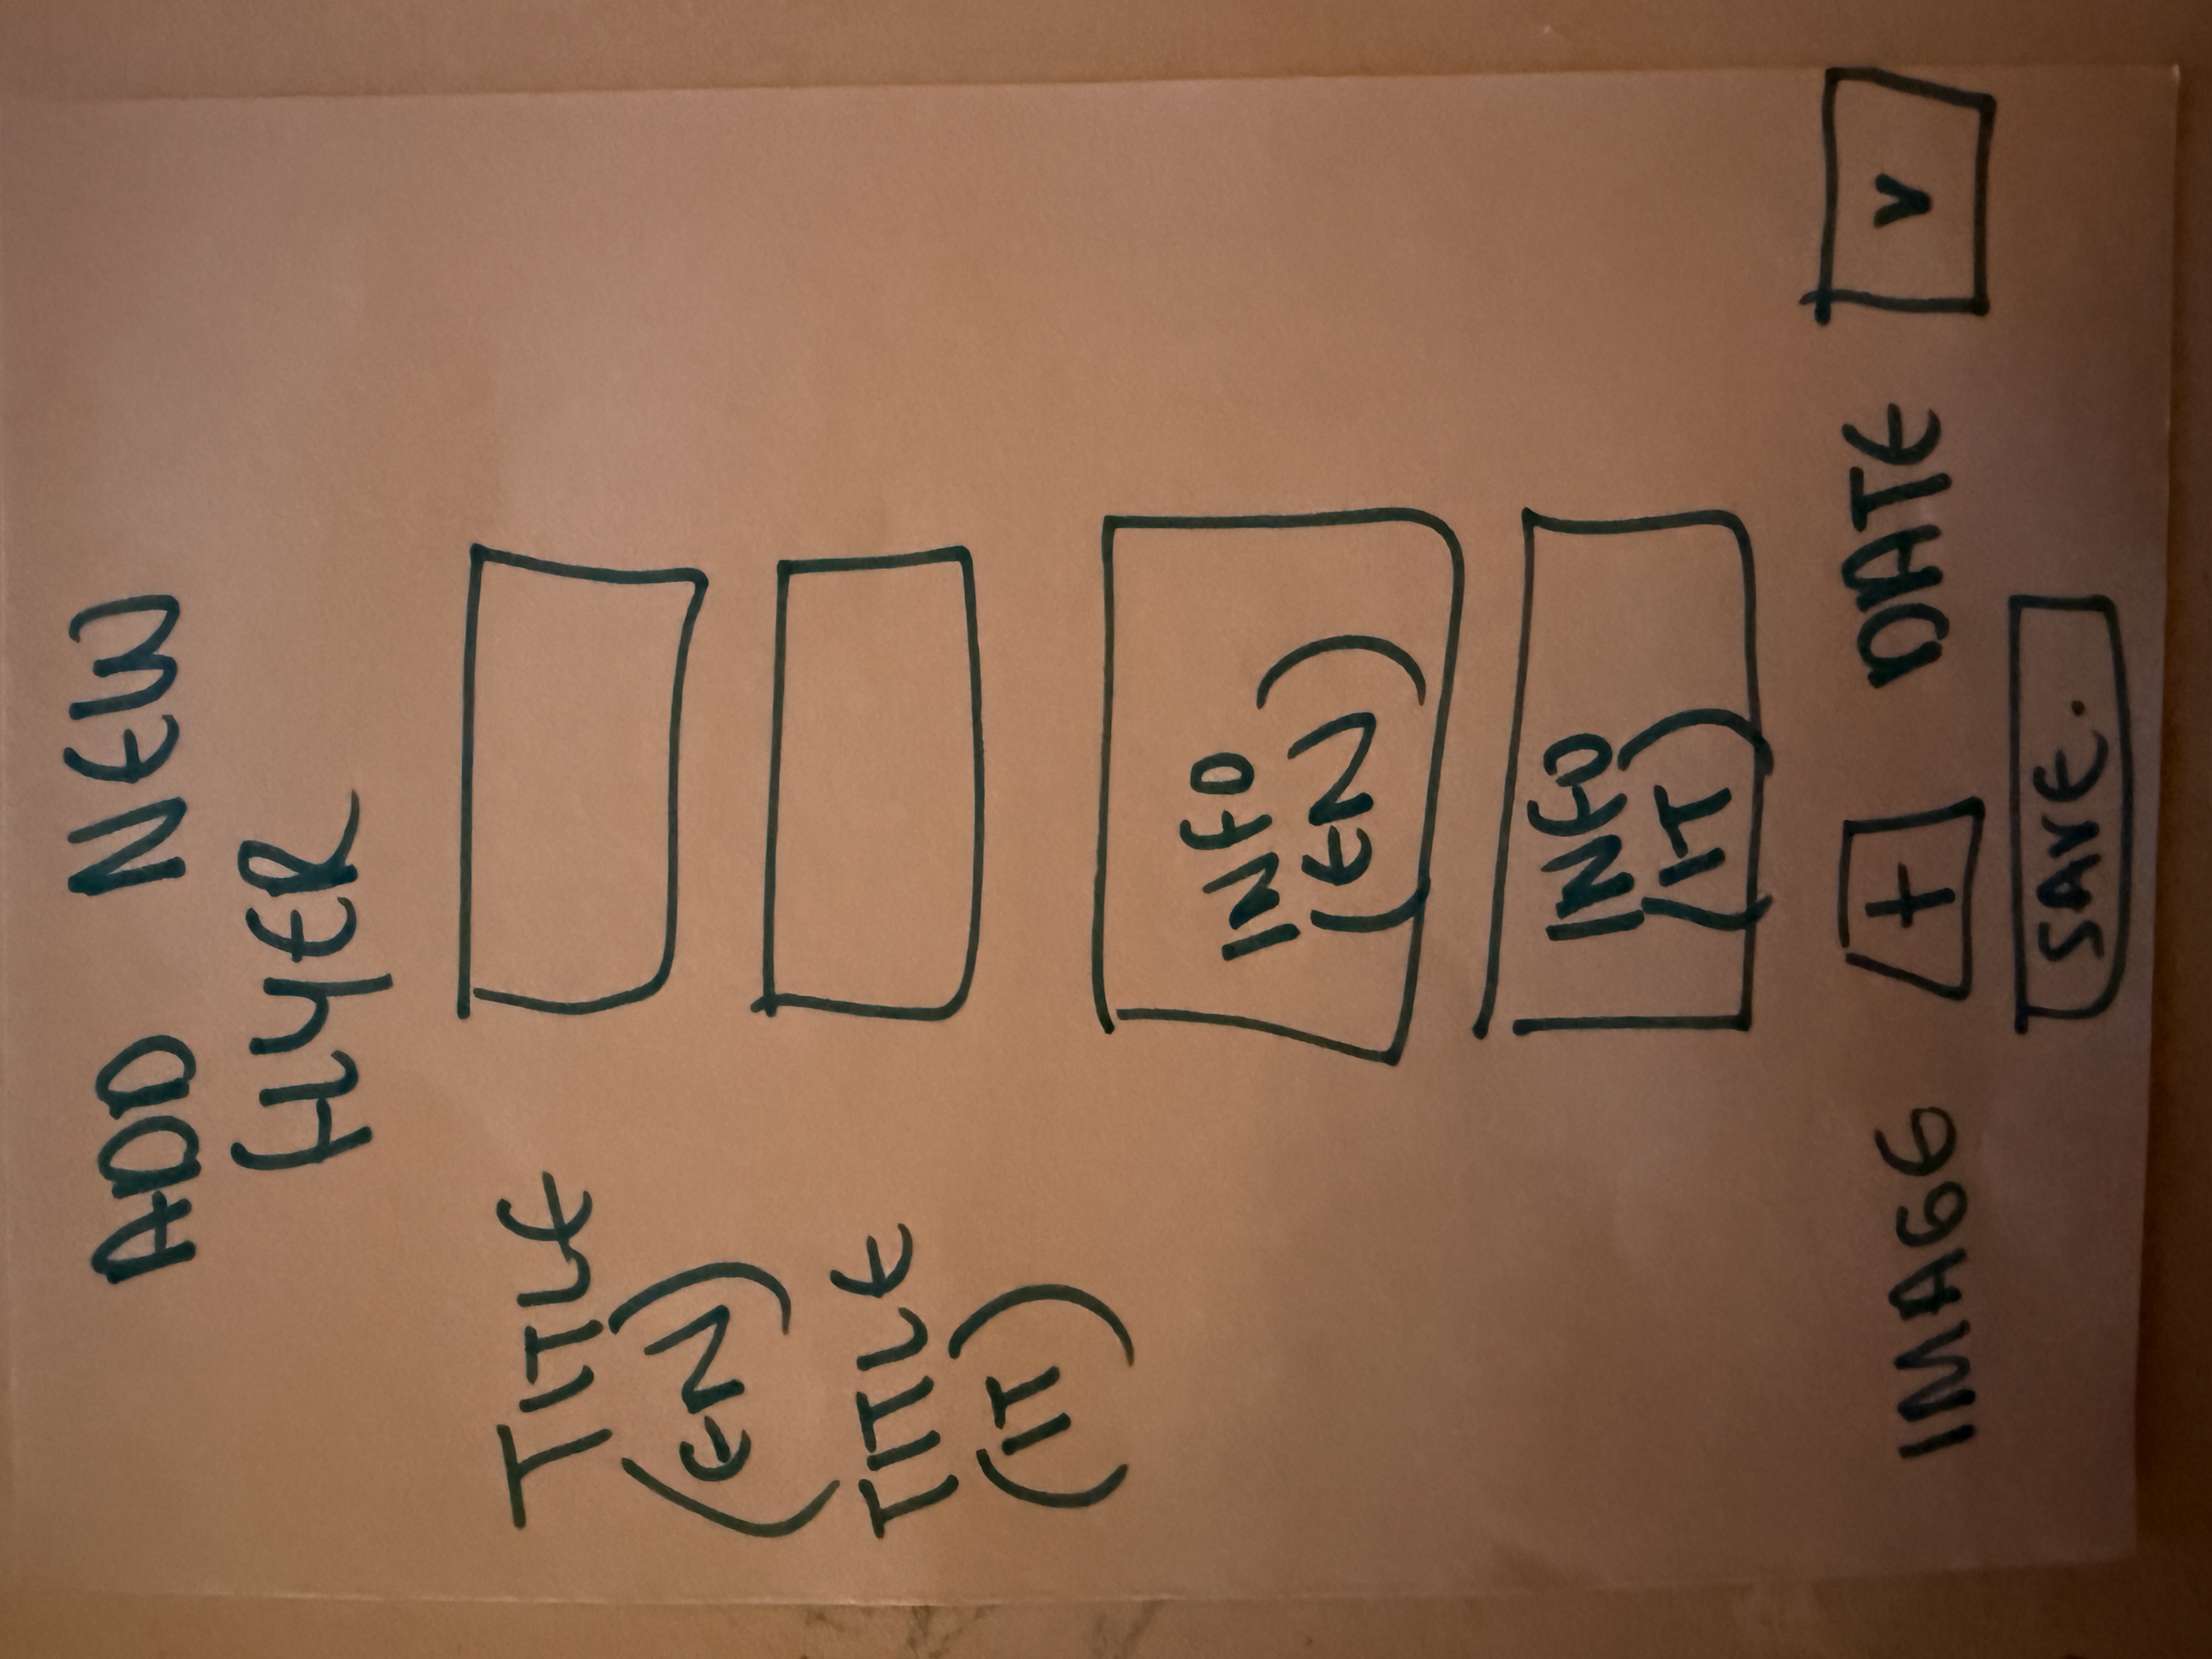 ADD NEW
FLYER
TITLE
(EN)
TITLE
(IT)
INFO
(EN)
INFO
(IT)
IMAGE + DATE V
SAVE.